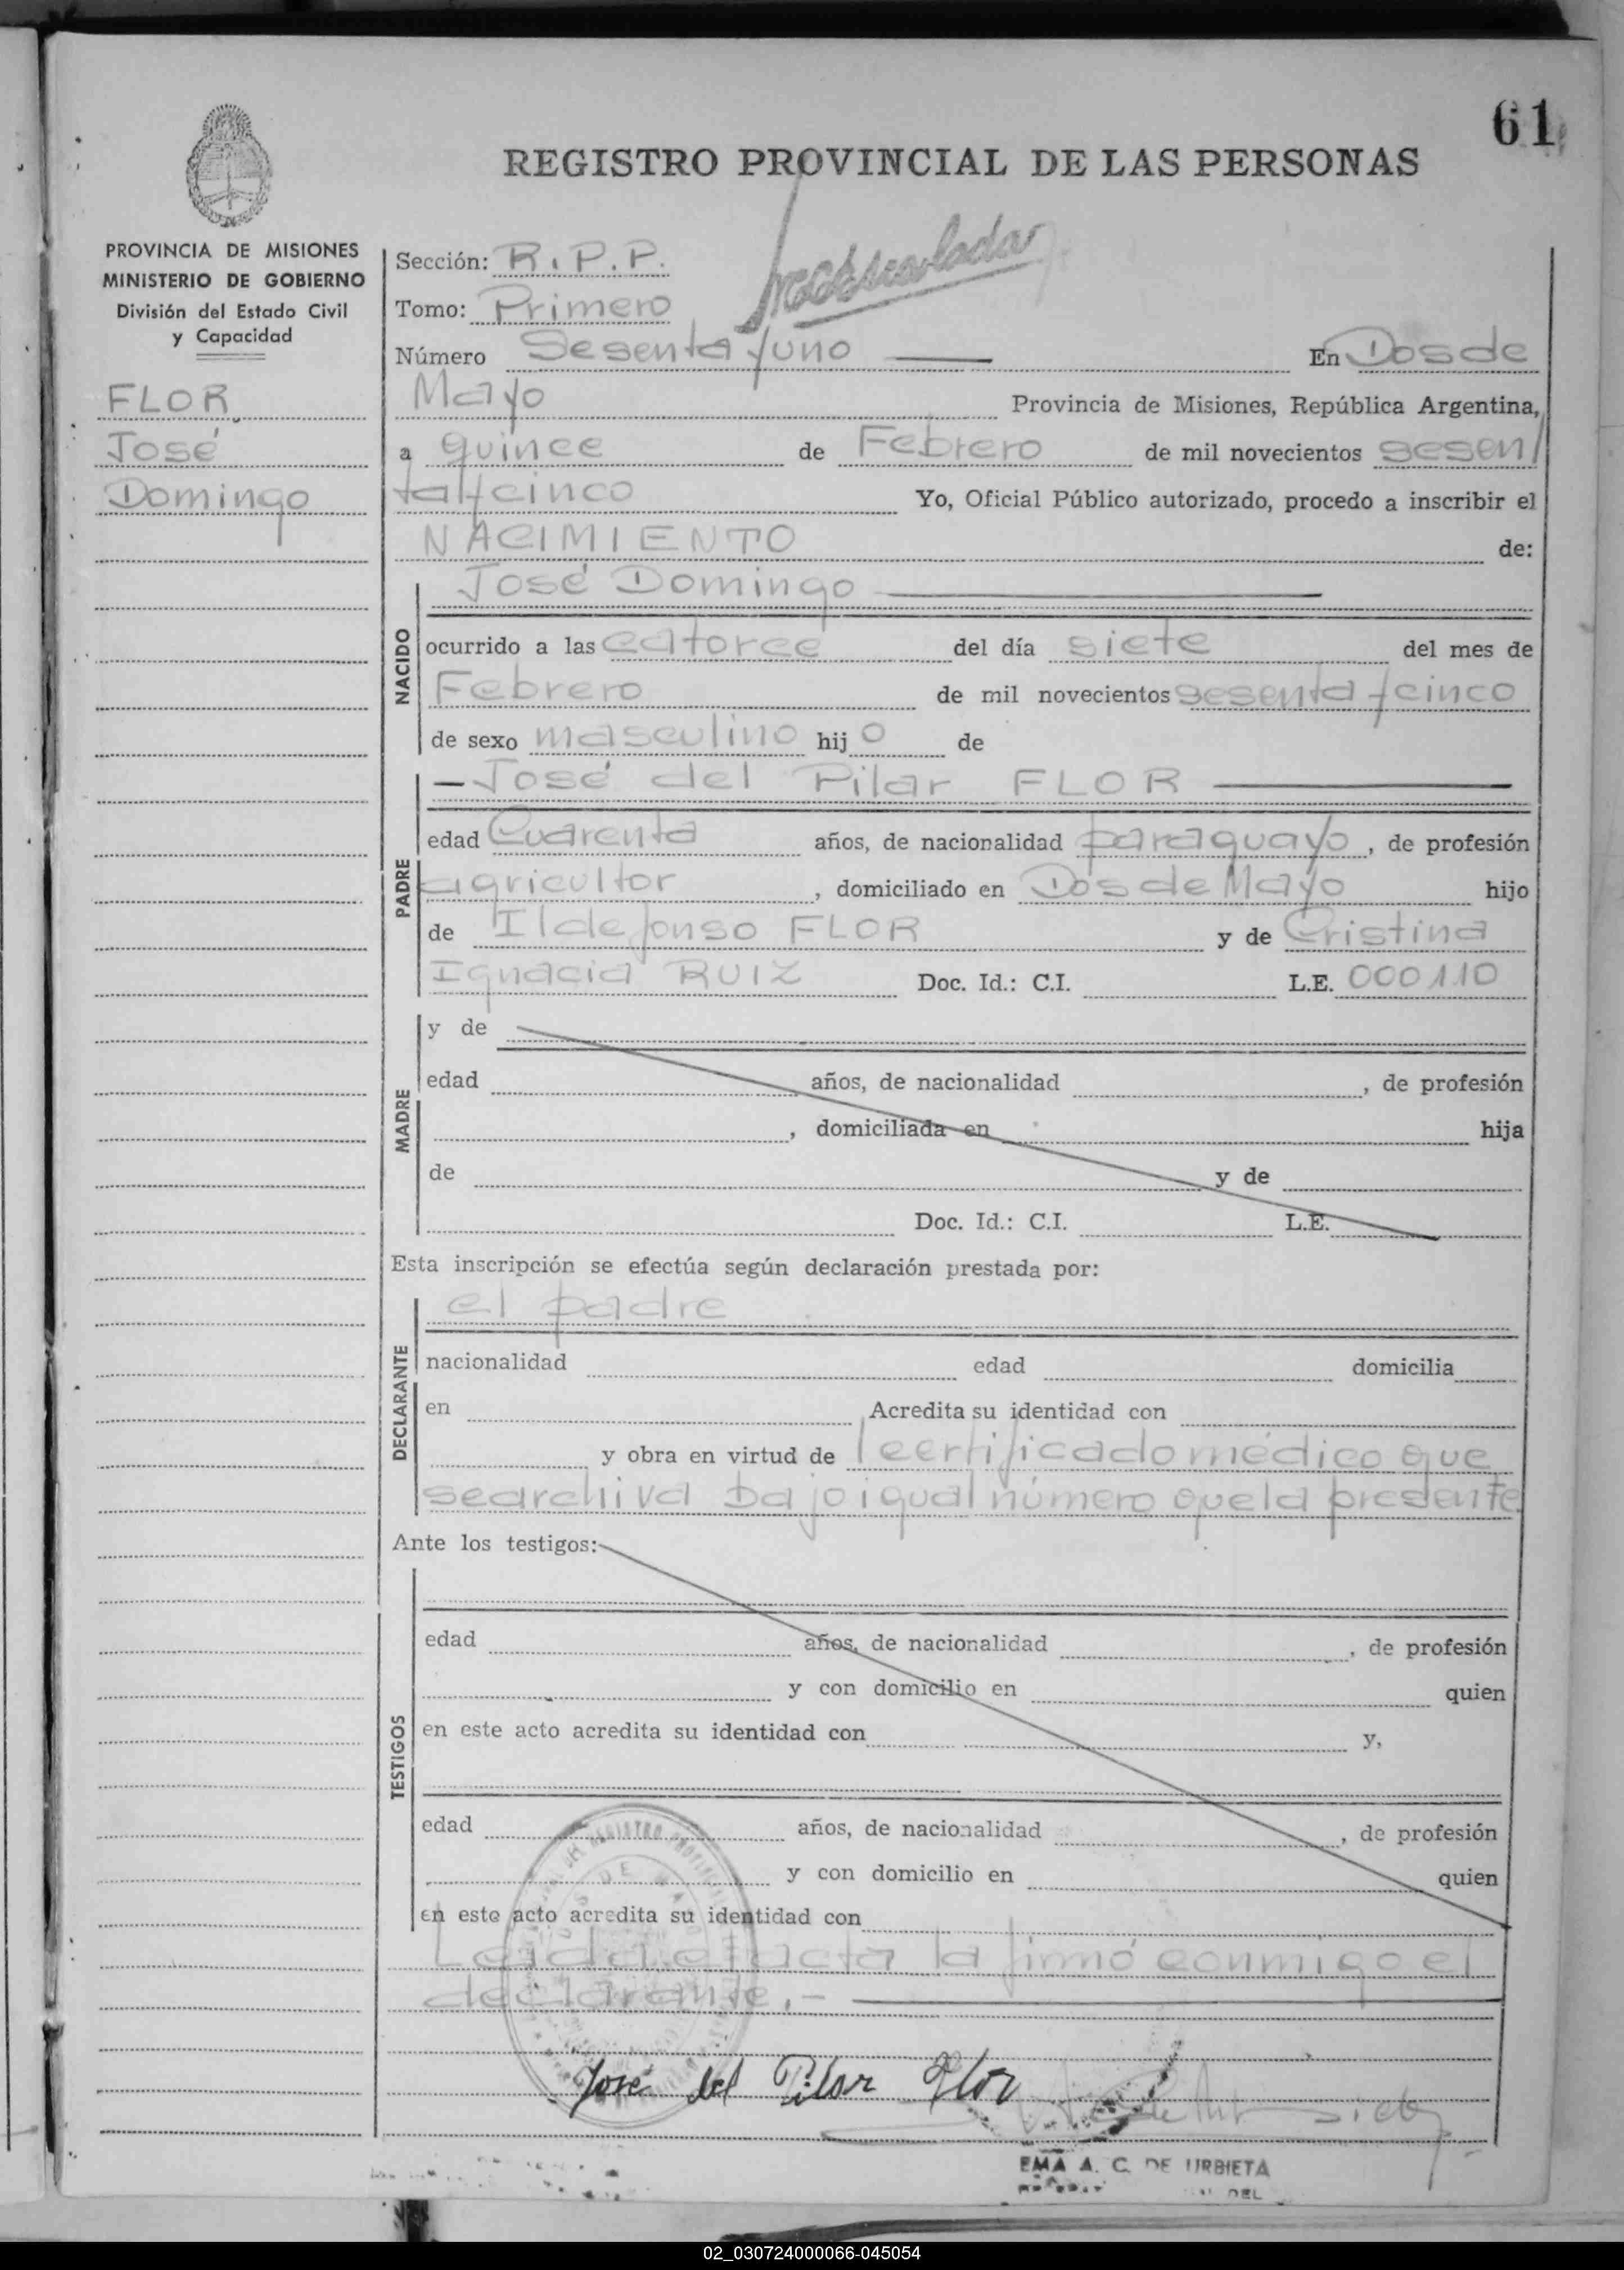 61
REGISTRO PROVINCIAL DE LAS PERSONAS
PROVINCIA DE MISIONES
MINISTERIO DE GOBIERNO
División del Estado Civil
y Capacidad
FLOR
José
Domingo
Sección: R.P.P.
Tomo: Primero
Número Sesenta y uno En Dos de
Mayo Provincia de Misiones, República Argentina,
a quince de Febrero de mil novecientos sesen/
ta y cinco Yo, Oficial Público autorizado, procedo a inscribir el
NACIMIENTO de:
José Domingo
NACIDO
ocurrido a las catorce del día siete del mes de
Febrero de mil novecientos sesenta y cinco
de sexo masculino hijo de
—José del Pilar FLOR
PADRE
edad Cuarenta años, de nacionalidad paraguayo, de profesión
agricultor, domiciliado en Dos de Mayo hijo
de Ildefonso FLOR y de Cristina
Ignacia RUIZ Doc. Id.: C.I. L.E. 000110
MADRE
y de
edad años, de nacionalidad , de profesión
, domiciliada en hija
de y de
Doc. Id.: C.I. L.E.
Esta inscripción se efectúa según declaración prestada por:
el padre
DECLARANTE
nacionalidad edad domicilia
en Acredita su identidad con
y obra en virtud de certificado médico que
se archiva bajo igual número que la presente
Ante los testigos:
TESTIGOS
edad años, de nacionalidad , de profesión
y con domicilio en quien
en este acto acredita su identidad con y,
edad años, de nacionalidad , de profesión
y con domicilio en quien
en este acto acredita su identidad con
Leida el acta la firmó conmigo el
declarante.-
José del Pilar Flor
EMA A. C. DE URBIETA
DEL
02_030724000066-045054